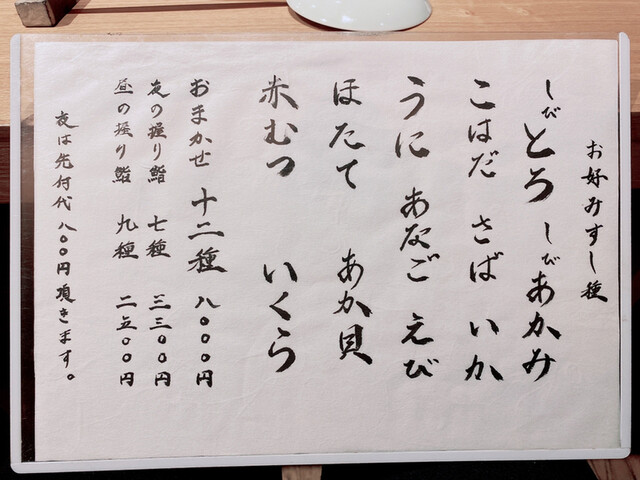 お好みすし種
しびとろ しびあかみ
こはだ さば いか
うに あなご えび
ほたて あか貝
赤むつ いくら
おまかせ 十二種 八〇〇〇円
夜の握り鮨 七種 三三〇〇円
昼の握り鮨 九種 二五〇〇円
夜は先付代八〇〇円頂きます。